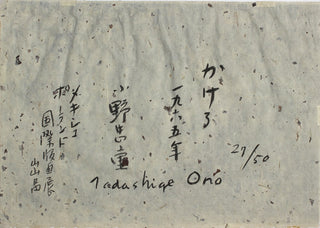 かける
一九六五年
小野忠重
Tadashige Ono
27/50
メキシコ
ポーランド
国際版画展
出品